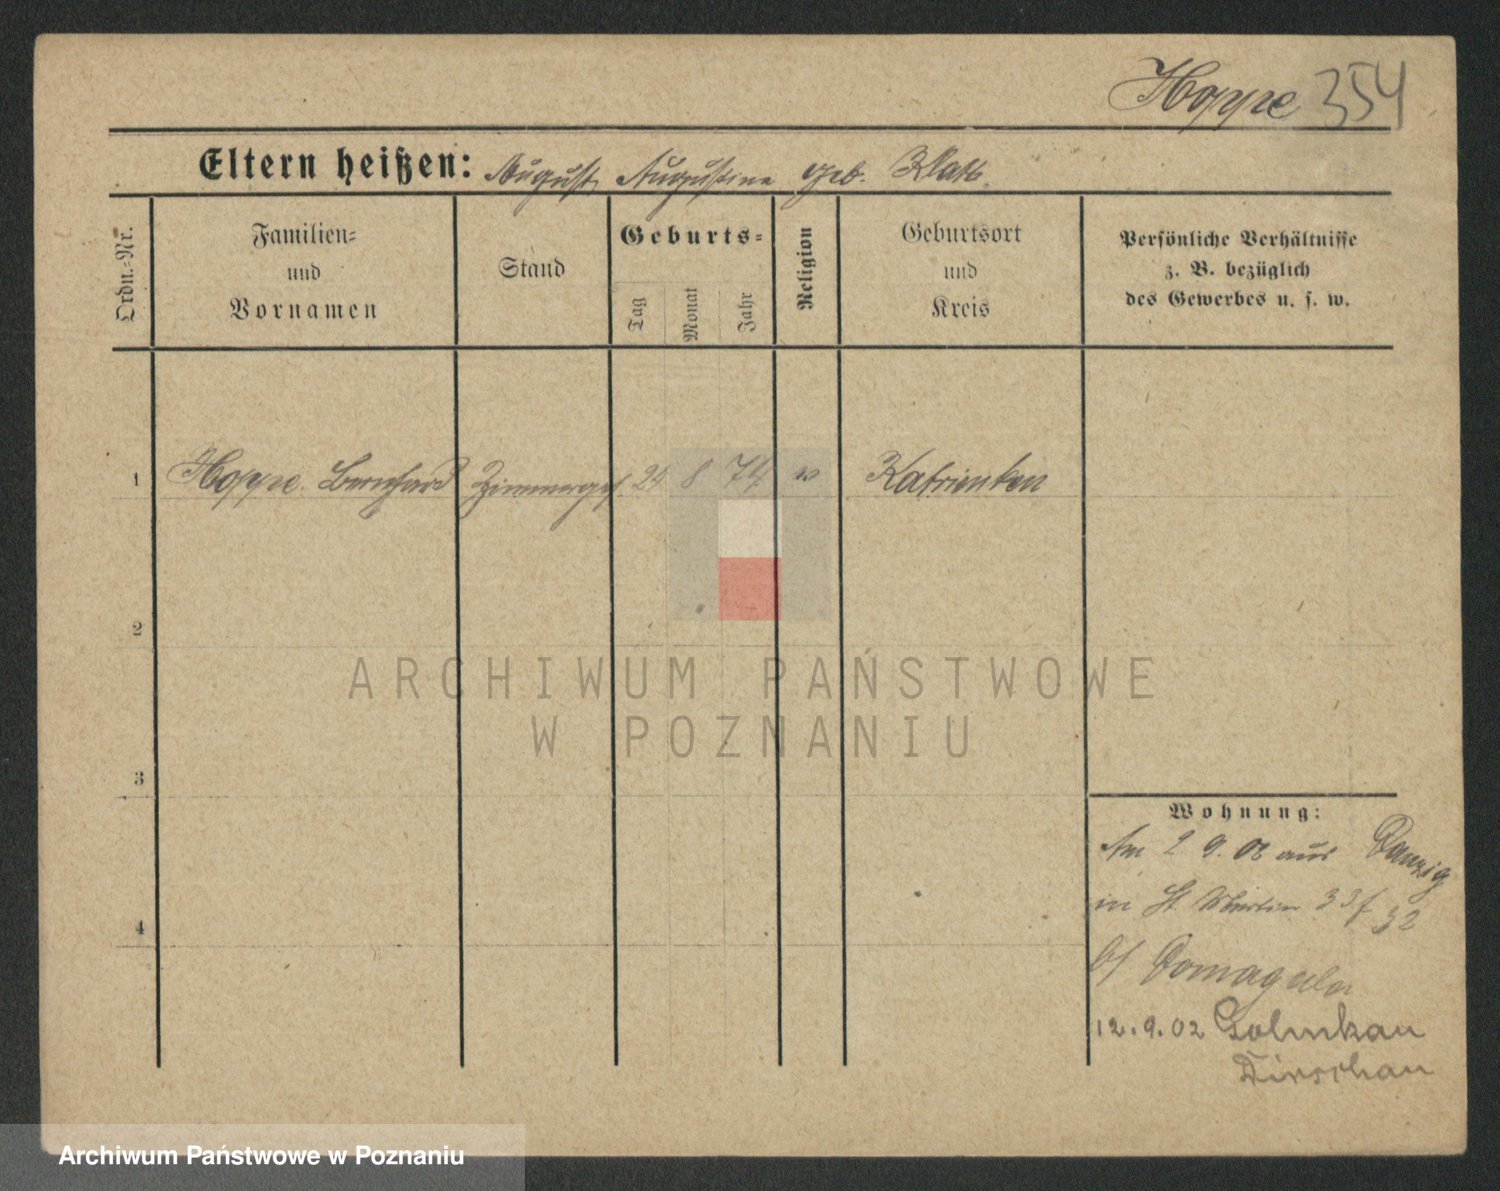 Hoppe 354
Eltern heißen: August, Augustine geb. Klatt
Ordn.-Nr.
Familien-
und
Vornamen
Stand
Geburts-
Tag
Monat
Jahr
Religion
Geburtsort
und
Kreis
Persönliche Verhältnisse
z. B. bezüglich
des Gewerbes u. s. w.
1 Hoppe Bernhard Zimmerges. 24 8 74 Katrienken
2
3
4
Wohnung:
Am 2. 9. 02 aus Danzig
in St. Martin 33/32
b/ Domagala
12.9.02 Golmkau
Dirschau
ARCHIWUM PAŃSTWOWE
W POZNANIU
Archiwum Państwowe w Poznaniu